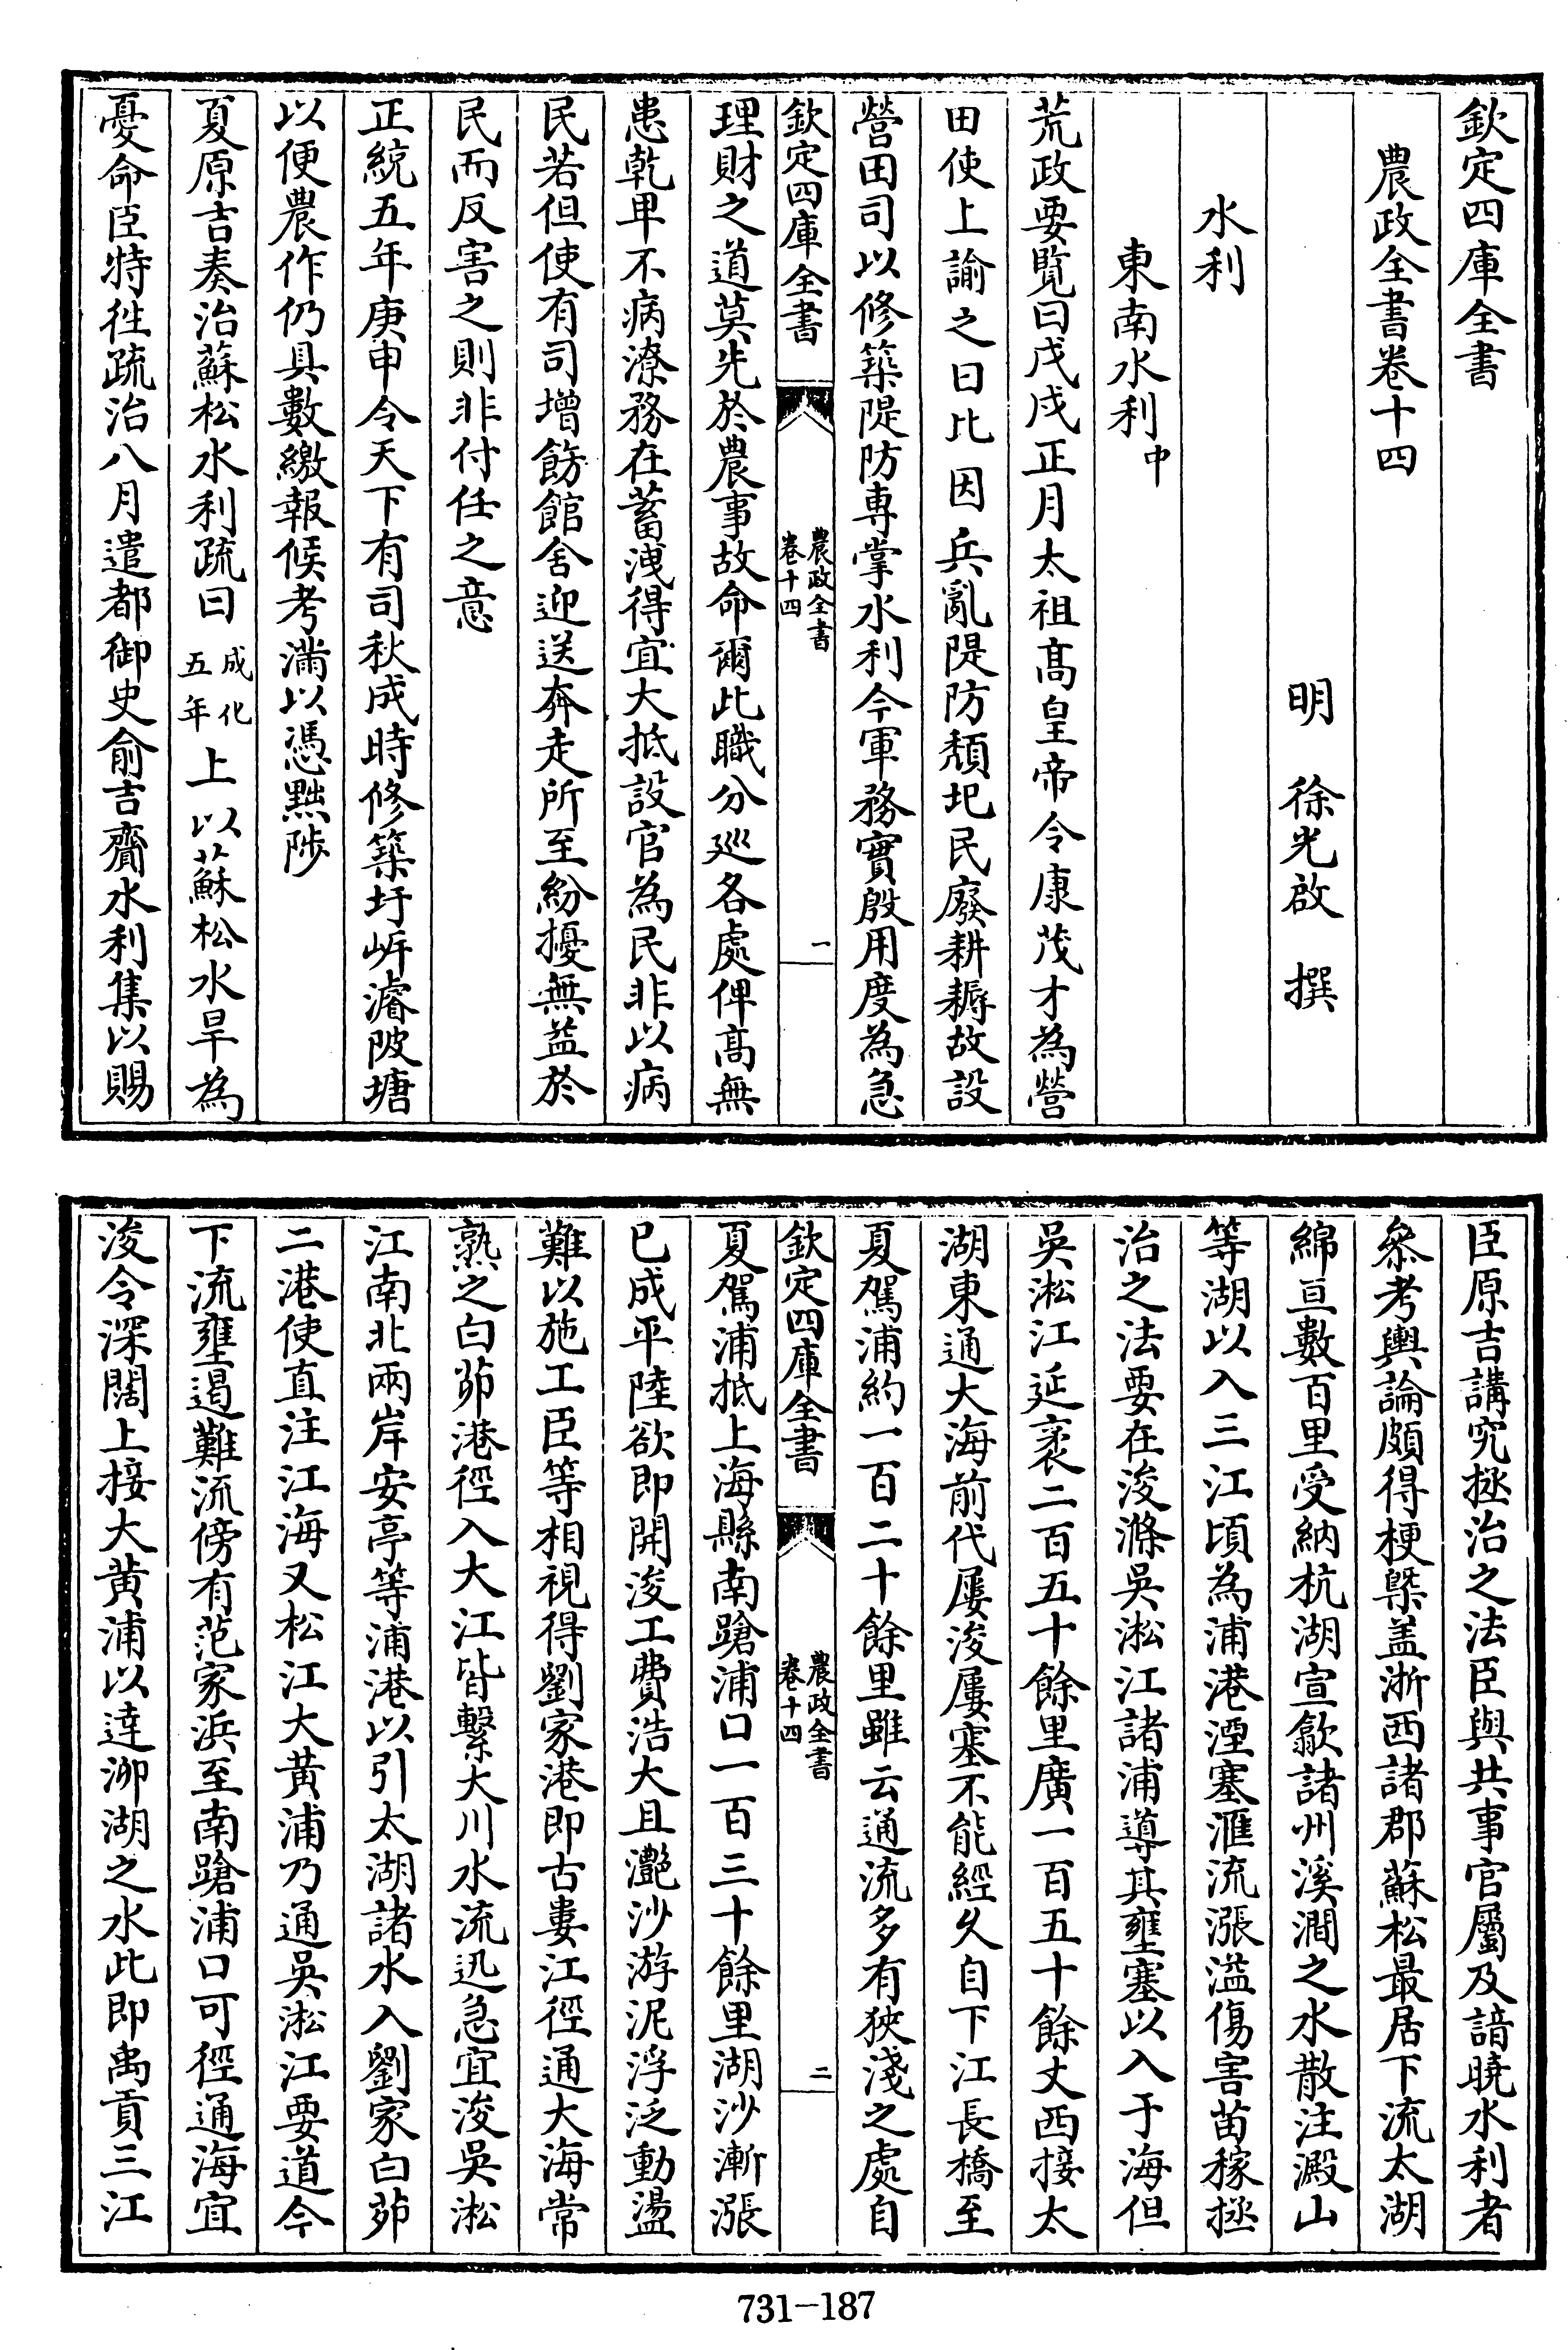 欽定四庫全書
農政全書卷十四
明 徐光啟 撰
水利
東南水利中
荒政要覧曰戊戌正月太祖髙皇帝令康茂才為營
田使上諭之曰比因兵亂隄防頽圮民廢耕耨故設
營田司以修築隄防専掌水利今軍務實殷用度為急
欽定四庫全書
農政全書
卷十四
一
理財之道莫先於農事故命爾此職分廵各處俾髙無
患乾卑不病潦務在蓄洩得宜大抵設官為民非以病
民若但使有司增飭館舍迎送奔走所至紛擾無益於
民而反害之則非付任之意
正統五年庚申令天下有司秋成時修築圩岍濬陂塘
以便農作仍具數繳報候考滿以憑黜陟
夏原吉奏治蘇松水利疏曰成化五年上以蘇松水旱為
憂命臣特徃疏治八月遣都御史俞吉齎水利集以賜
臣原吉講究拯治之法臣與共事官屬及諳曉水利者
叅考輿論頗得梗槩盖浙西諸郡蘇松最居下流太湖
綿亘數百里受納杭湖宣歙諸州溪澗之水散注澱山
等湖以入三江頃為浦港湮塞滙流漲溢傷害苗稼拯
治之法要在浚滌吳淞江諸浦導其壅塞以入于海但
吳淞江延袤二百五十餘里廣一百五十餘丈西接太
湖東通大海前代屢浚屢塞不能經乆自下江長橋至
夏駕浦約一百二十餘里雖云通流多有狹淺之處自
欽定四庫全書
農政全書
卷十四
二
夏駕浦抵上海縣南蹌浦口一百三十餘里湖沙漸漲
已成平陸欲即開浚工費浩大且灔沙游泥浮泛動盪
難以施工臣等相視得劉家港即古婁江徑通大海常
熟之白茆港徑入大江皆繫大川水流迅急宜浚吳淞
江南北兩岸安亭等浦港以引太湖諸水入劉家白茆
二港使直注江海又松江大黄浦乃通吳淞江要道今
下流壅遏難流傍有范家浜至南蹌浦口可徑通海宜
浚令深闊上接大黄浦以逹泖湖之水此即禹貢三江
731-187